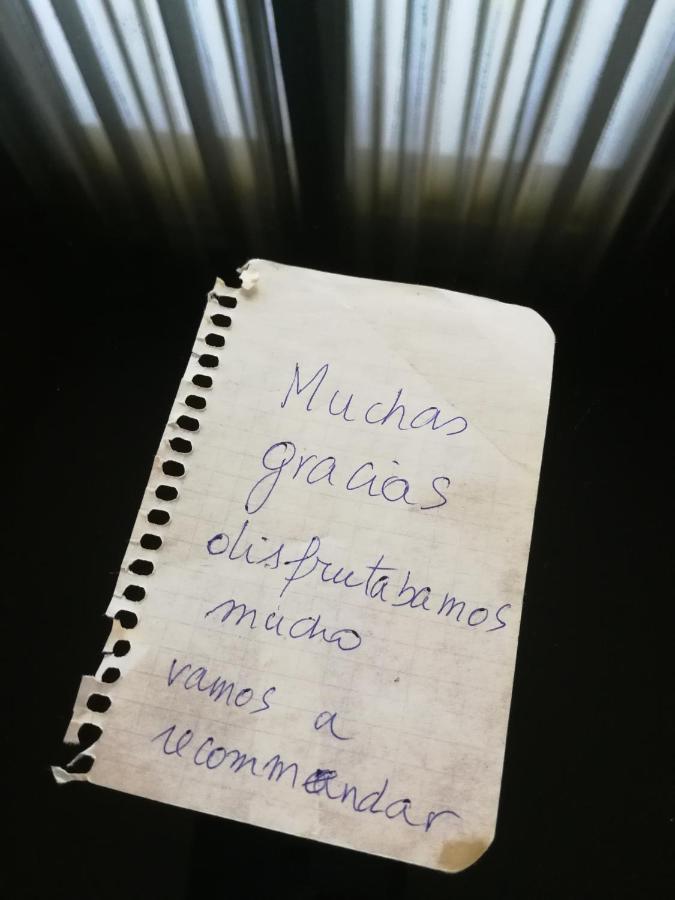 Muchas
gracias
disfrutabamos
mucho
vamos a
recommendar